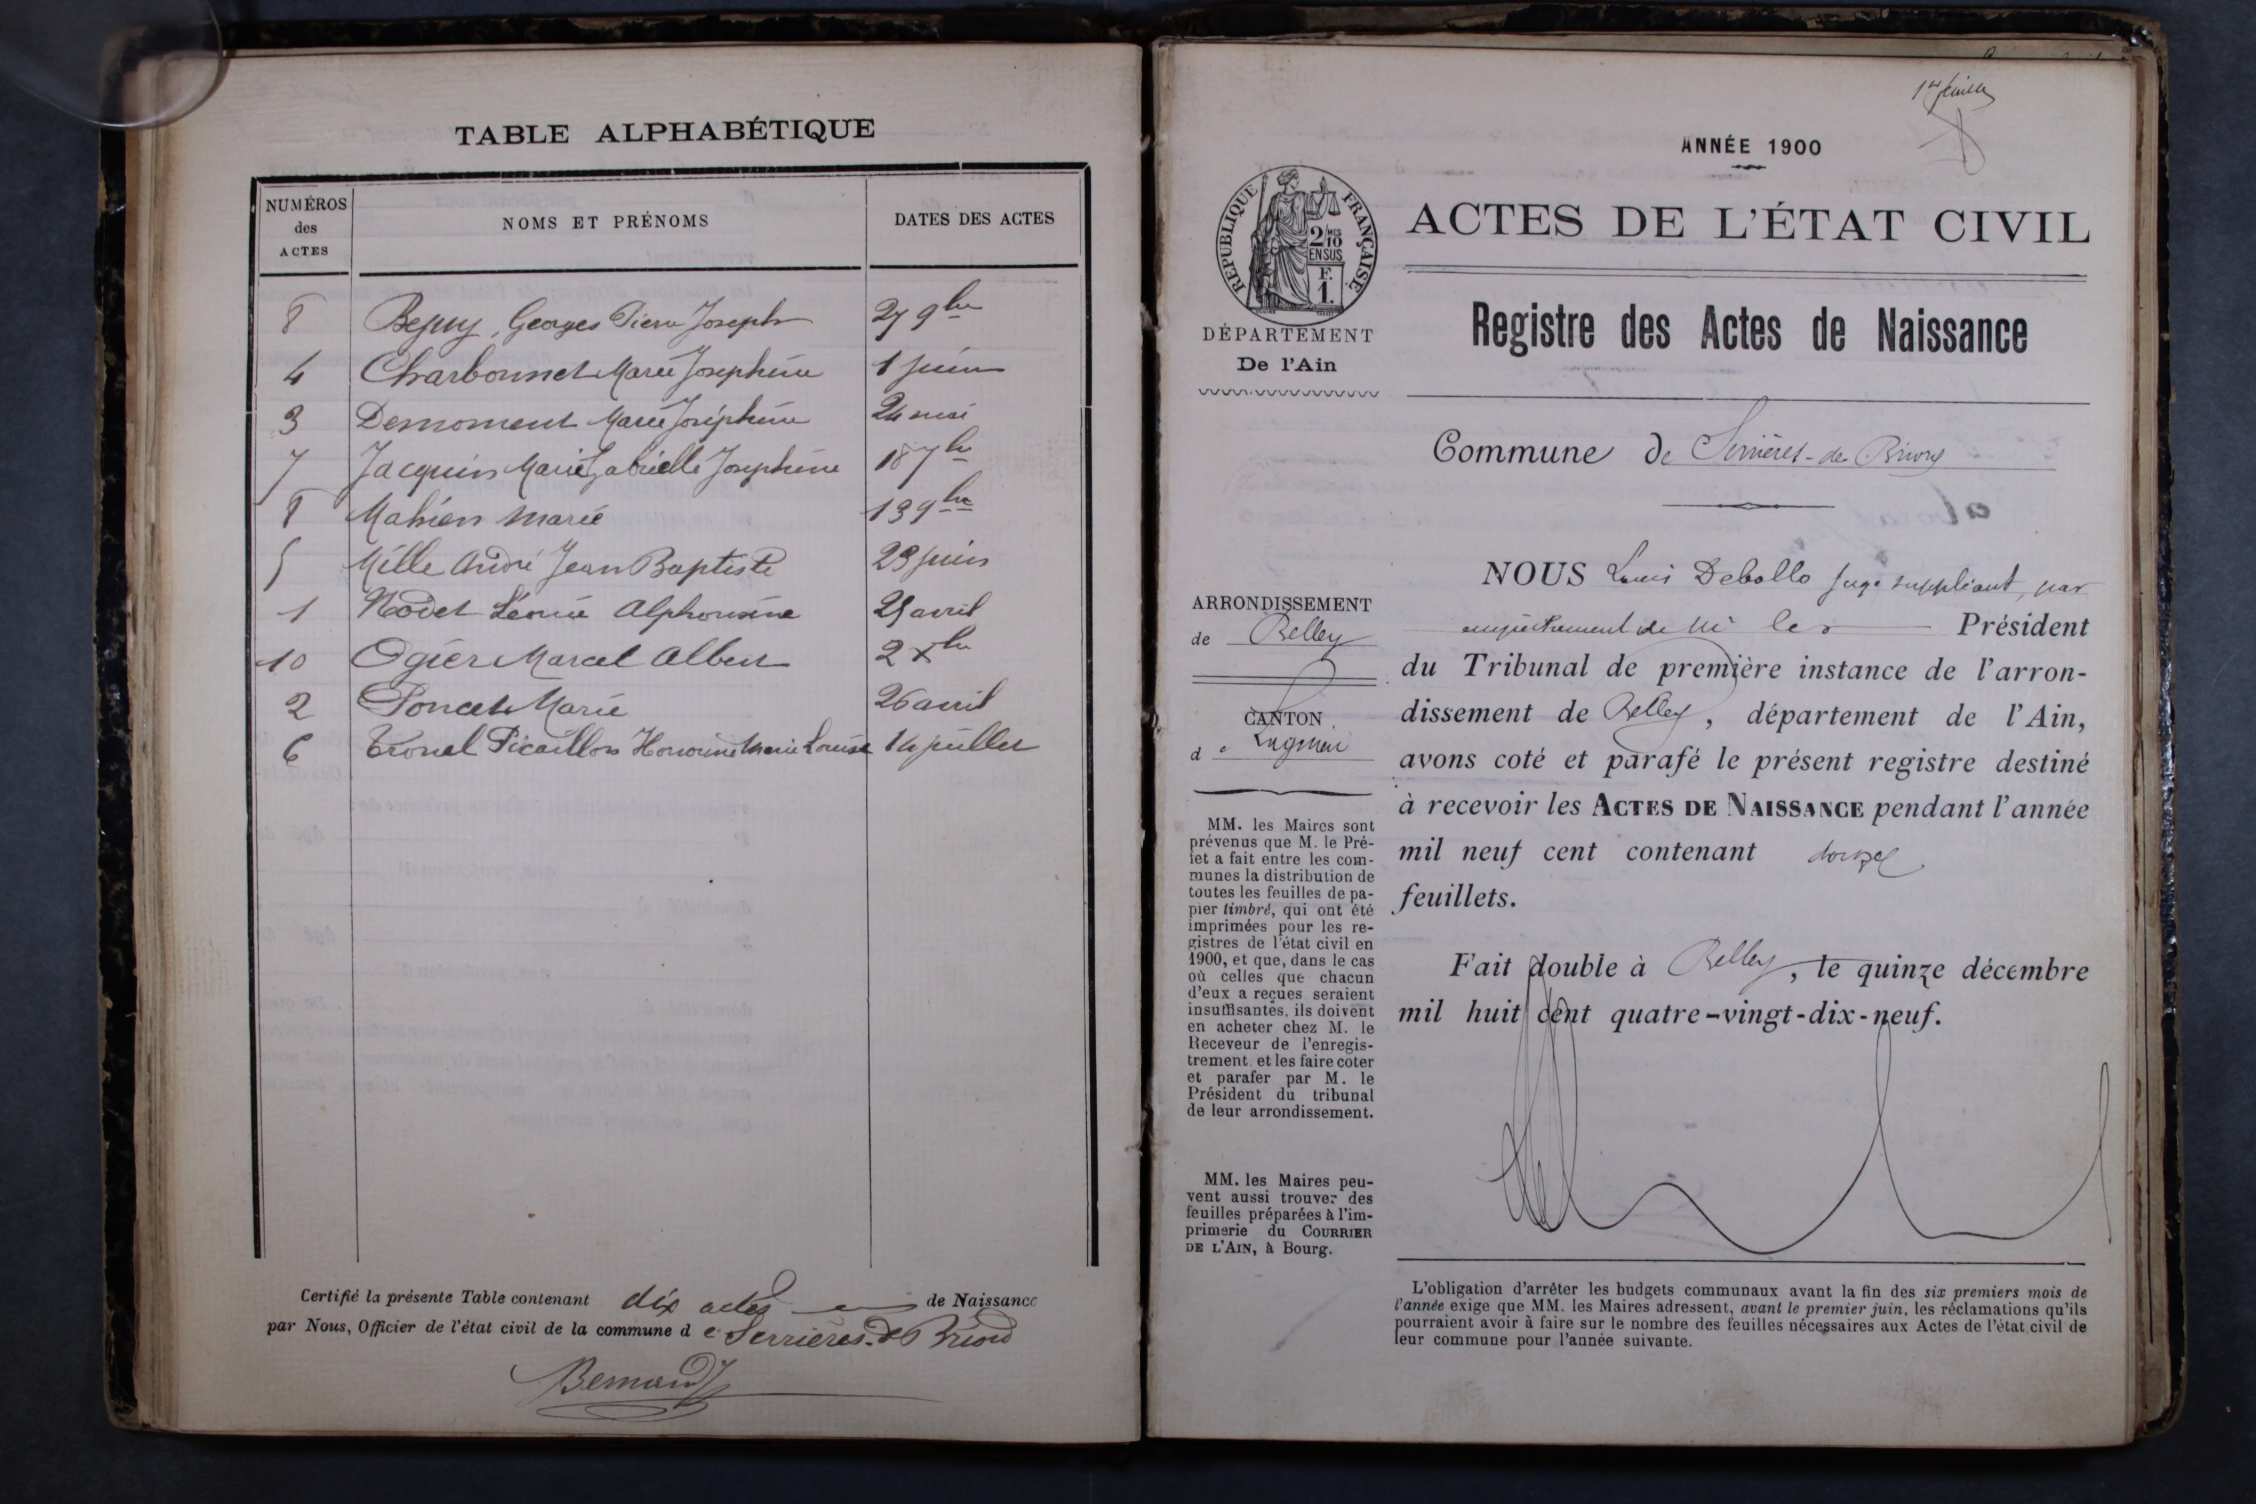 TABLE ALPHABÉTIQUE
NUMÉROS des ACTES | NOMS ET PRÉNOMS | DATES DES ACTES
8 Georges Pierre Joseph 27 9bre
4 Charbonnet Marie Joséphine 1 juin
3 Demoment Marie Joséphine 24 mai
7 Jacquin Marie Gabrielle Joséphine 18 7bre
8 Mahien Marie 13 9bre
5 Mille André Jean Baptiste 23 juin
1 Nodet Léonie Alphonsine 25 avril
10 Ogier Marcel Albert 2 Xbre
2 Poncet Marie 26 avril
6 Tronel Picaillon Honorine Marie Louise 14 juillet
Certifié la présente Table contenant dix actes de Naissance
par Nous, Officier de l'état civil de la commune de Serrières-de Briord
Bernard
ANNÉE 1900
RÉPUBLIQUE FRANÇAISE
2/10 MES
EN SUS
F.
1.
DÉPARTEMENT
De l'Ain
ACTES DE L'ÉTAT CIVIL
Registre des Actes de Naissance
Commune de Serrières-de Briord
ARRONDISSEMENT
de Belley
CANTON
de Lagnieu
MM. les Maires sont
prévenus que M. le Pré-
fet a fait entre les com-
munes la distribution de
toutes les feuilles de pa-
pier timbré, qui ont été
imprimées pour les re-
gistres de l'état civil en
1900, et que, dans le cas
où celles que chacun
d'eux a reçues seraient
insuffisantes, ils doivent
en acheter chez M. le
Receveur de l'enregis-
trement et les faire coter
et parafer par M. le
Président du tribunal
de leur arrondissement.
MM. les Maires peu-
vent aussi trouver des
feuilles préparées à l'im-
primerie du COURRIER
DE L'AIN, à Bourg.
NOUS Louis Debollo juge suppléant, par
empêchement de Mr le Président
du Tribunal de première instance de l'arron-
dissement de Belley, département de l'Ain,
avons coté et parafé le présent registre destiné
à recevoir les ACTES DE NAISSANCE pendant l'année
mil neuf cent contenant douze
feuillets.
Fait double à Belley, le quinze décembre
mil huit cent quatre-vingt-dix-neuf.
L'obligation d'arrêter les budgets communaux avant la fin des six premiers mois de
l'année exige que MM. les Maires adressent, avant le premier juin, les réclamations qu'ils
pourraient avoir à faire sur le nombre des feuilles nécessaires aux Actes de l'état civil de
leur commune pour l'année suivante.